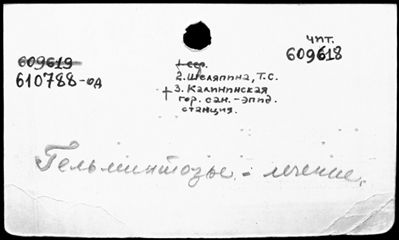 чит.
609618
609619
610788-од
1 сер.
2. Шеляпина, Т.С.
+ 3. Калининская
гор. сан.-эпид.
станция.
Гельминтозы - лечение.